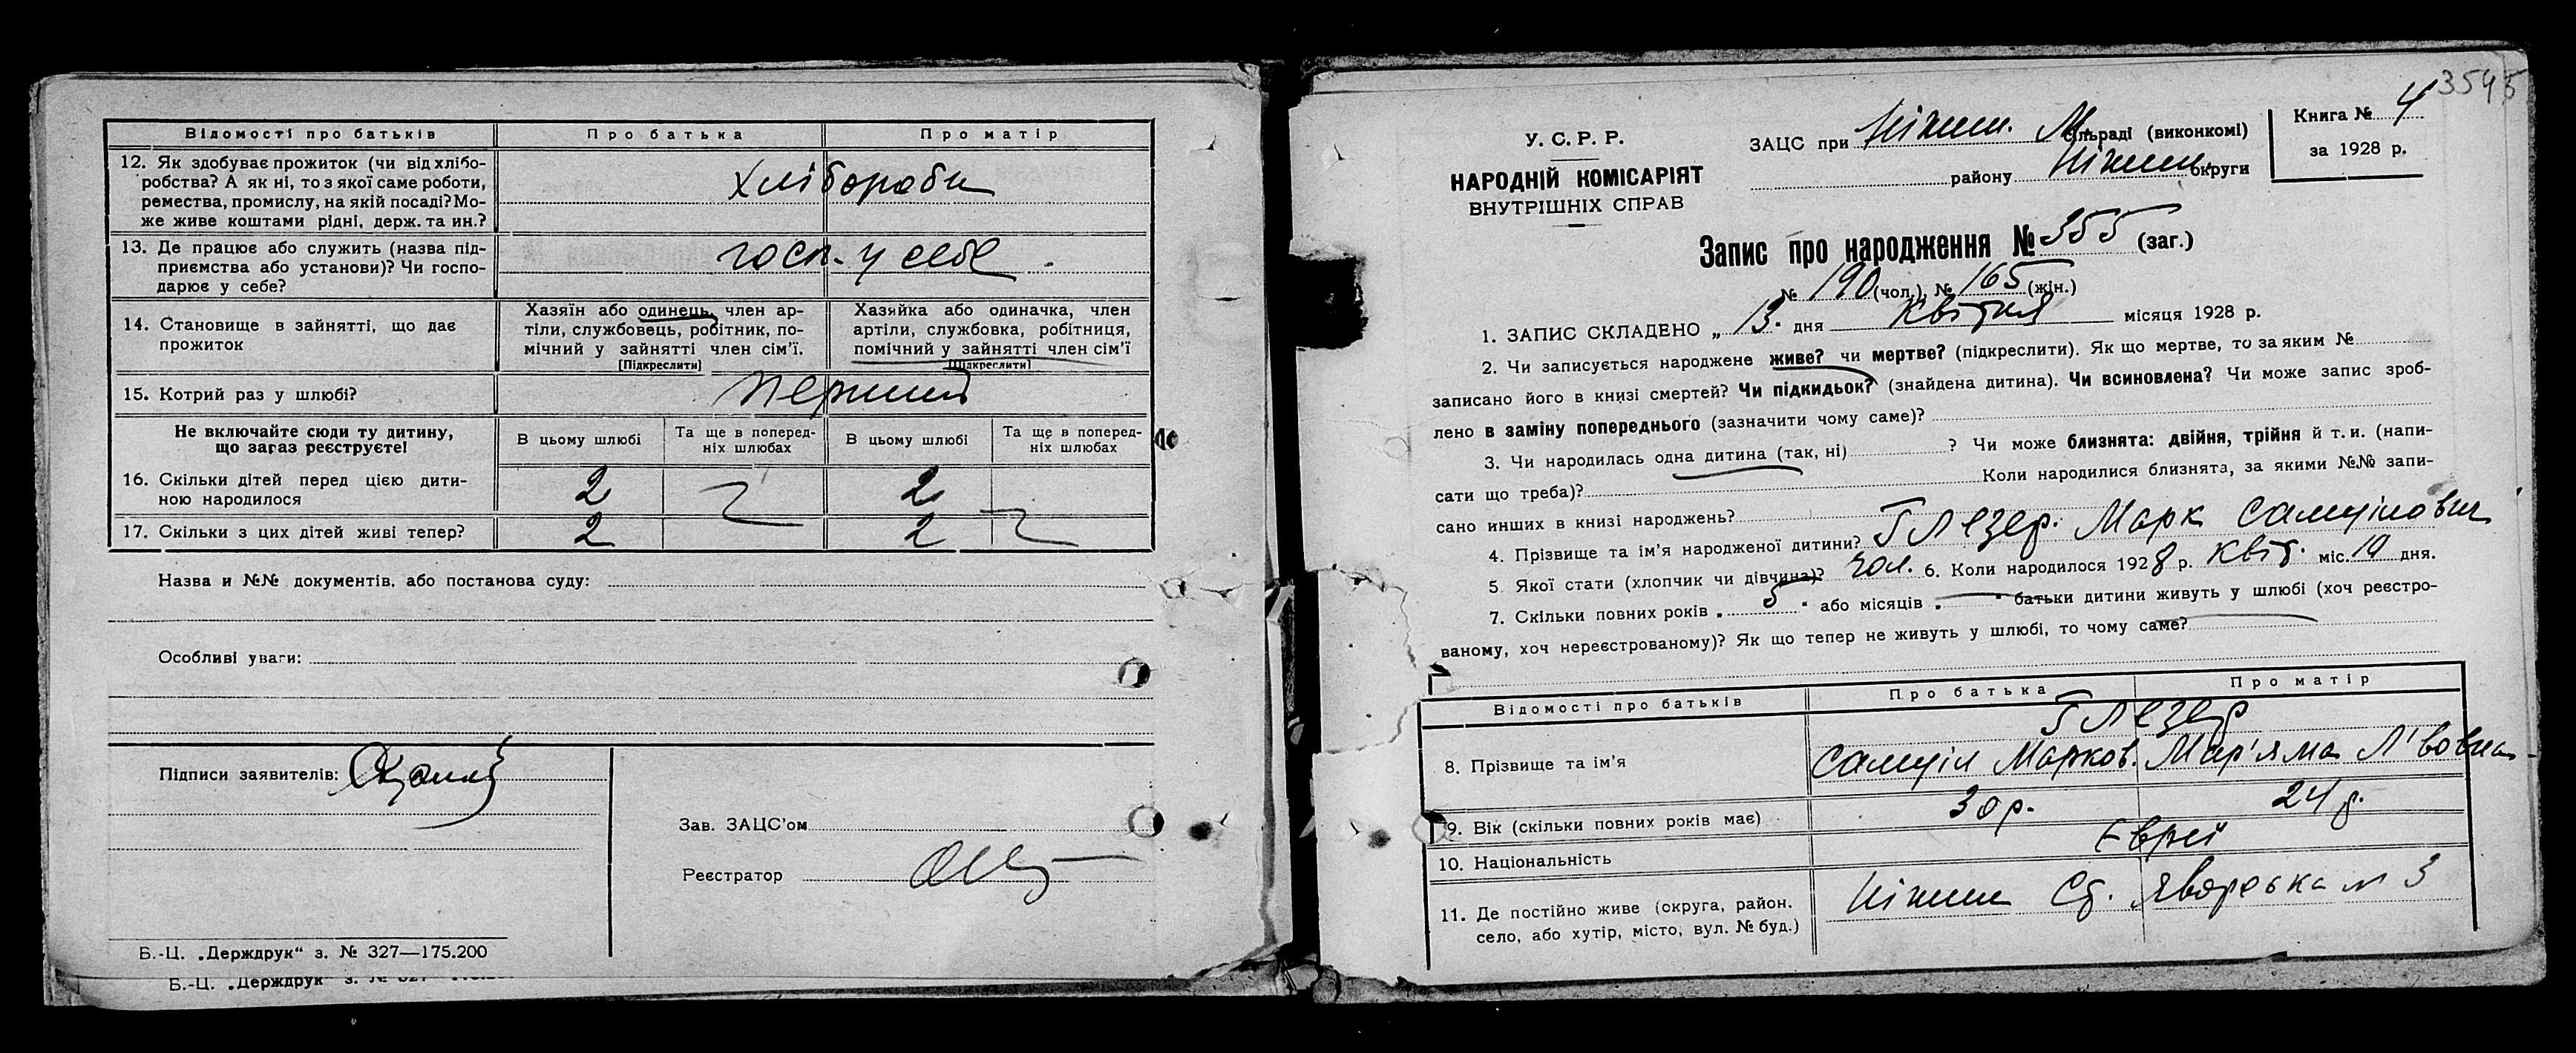 Відомості про батьків Про батька Про матір
12. Як здобуває прожиток (чи від хлібо-
робства? А як ні, то з якої саме роботи,
ремества, промислу, на якій посаді? Мо-
же живе коштами рідні, держ. та ин.?
хлібороби
13. Де працює або служить (назва під-
приємства або установи)? Чи госпо-
дарює у себе?
госп. у себе
14. Становище в зайнятті, що дає
прожиток
Хазяїн або одинець, член ар-
тіли, службовець, робітник, по-
мічний у зайнятті член сім'ї.
[Підкреслити]
Хазяйка або одиначка, член
артіли, службовка, робітниця,
помічний у зайнятті член сім'ї
[Підкреслити]
15. Котрий раз у шлюбі?
перший
Не включайте сюди ту дитину,
що загаз реєструєте!
В цьому шлюбі
Та ще в поперед-
ніх шлюбах
В цьому шлюбі
Та ще в поперед-
ніх шлюбах
16. Скільки дітей перед цією дити-
ною народилося
2 2
17. Скільки з цих дітей живі тепер?
2 2
Назва и №№ документів, або постанова суду:
Особливі уваги:
Підписи заявителів:
Зав. ЗАЦС'ом
Реєстратор
Б.-Ц. „Держдрук“ з. № 327—175.200
Б.-Ц. „Держдрук
3545
У. С. Р. Р.
НАРОДНІЙ КОМІСАРІЯТ
ВНУТРІШНІХ СПРАВ
ЗАЦС при Ніжин. М. сільраді (виконкомі)
району Ніжин. округи
Книга № 4
за 1928 р.
Запис про народження № 355 (заг.)
№ 190 (чол.), № 165 (жін.)
1. ЗАПИС СКЛАДЕНО „ 13. дня квітня місяця 1928 р.
2. Чи записується народжене живе? чи мертве? (підкреслити). Як що мертве, то за яким №
записано його в книзі смертей? Чи підкидьок? (знайдена дитина). Чи всиновлена? Чи може запис зроб-
лено в заміну попереднього (зазначити чому саме)?
3. Чи народилась одна дитина (так, ні) ? Чи може близнята: двійня, трійня й т. и. (напи-
сати що треба)? Коли народилися близнята, за якими №№ запи-
сано инших в книзі народжень?
4. Прізвище та ім'я народженої дитини? Глезер. Марк Самуілович
5. Якої стати (хлопчик чи дівчина)? чол. 6. Коли народилося 1928 р. квіт. міс. 10 дня.
7. Скільки повних років „ 5 “ або місяців „ “ батьки дитини живуть у шлюбі (хоч реєстро-
ваному, хоч нереєстрованому)? Як що тепер не живуть у шлюбі, то чому саме?
Відомості про батьків Про батька Про матір
Глезер
8. Прізвище та ім'я Самуіл Марков. Мар'яма Л'вовна
9. Вік (скільки повних років має) 30 р. 24 р.
10. Національність Євреї
11. Де постійно живе (округа, район.
село, або хутір, місто, вул. № буд.)
Ніжин Яворська № 3